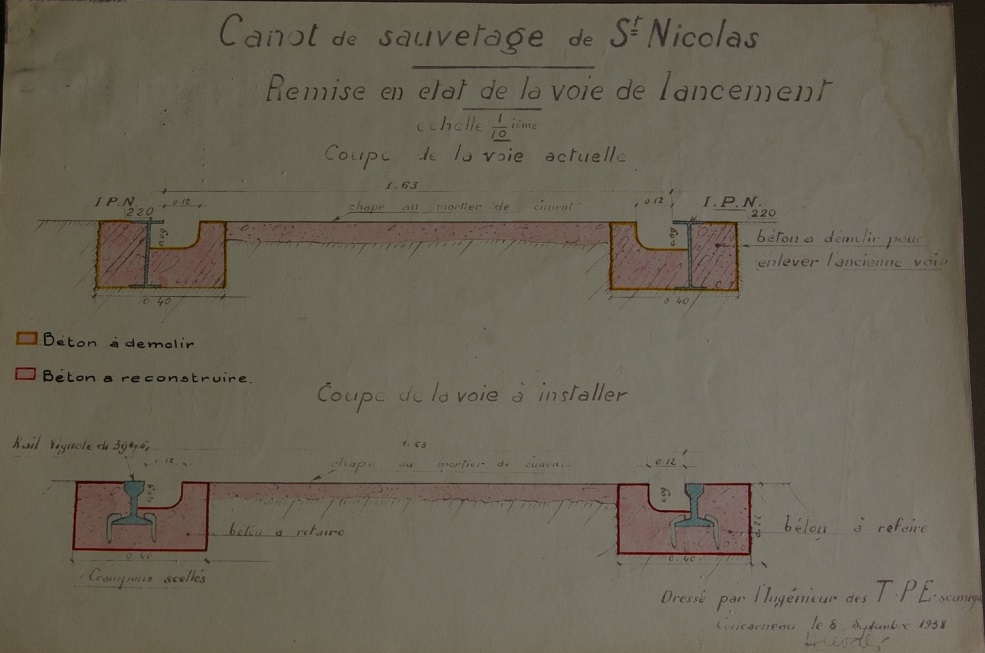 Canot de sauvetage de St Nicolas
Remise en etat de la voie de lancement
echelle 1/10 ième
Coupe de la voie actuelle
1.63
I.P.N. 220
0.12
chape au mortier de ciment
0.12
I.P.N. 220
0.09
0.09
béton a démolir pour
enlever l'ancienne voie
0.40
0.40
Béton à demolir
Béton a reconstruire.
Coupe de la voie à installer
Rail Vignole de
1.63
0.12
chape au mortier de ciment
0.12
0.09
0.09
béton a refaire
béton à refaire
0.40
0.40
Crampons scellés
Dressé par l'Ingénieur des T.P.E.
Concarneau le 8 Septembre 1938